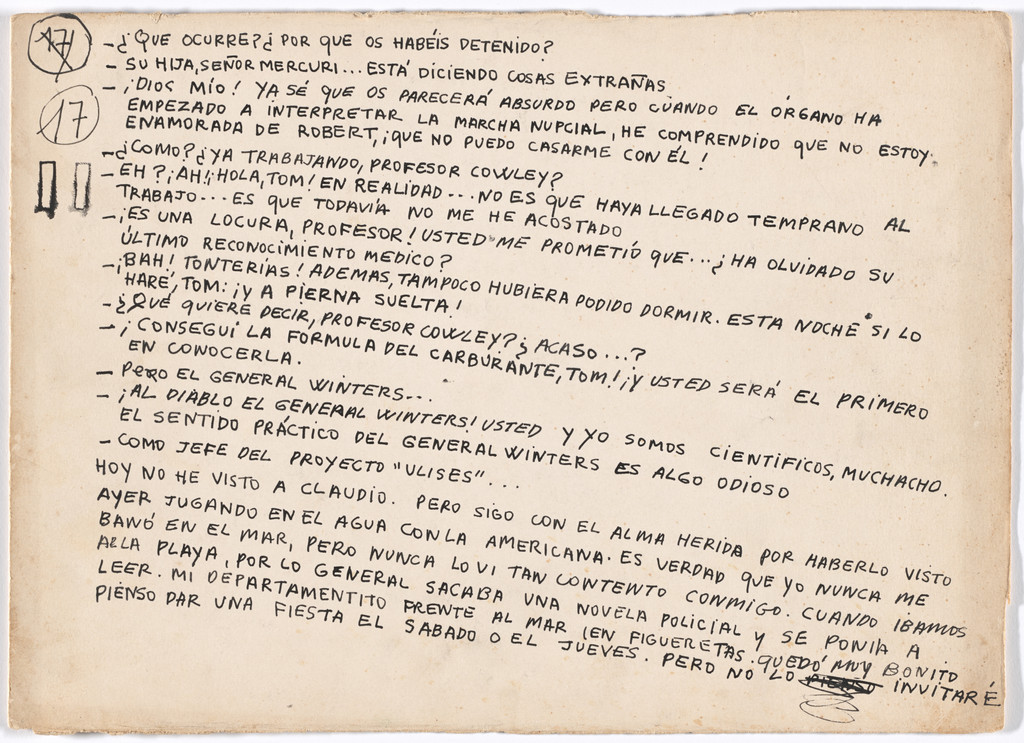 17
17
-¿QUE OCURRE?¿POR QUE OS HABÉIS DETENIDO?
- SU HIJA, SEÑOR MERCURI... ESTÁ DICIENDO COSAS EXTRAÑAS
- ¡DIOS MÍO! YA SÉ QUE OS PARECERÁ ABSURDO PERO CUANDO EL ÓRGANO HA
EMPEZADO A INTERPRETAR LA MARCHA NUPCIAL, HE COMPRENDIDO QUE NO ESTOY
ENAMORADA DE ROBERT, ¡QUE NO PUEDO CASARME CON ÉL!
-¿COMO?¿YA TRABAJANDO, PROFESOR COWLEY?
- EH?¡AH!¡HOLA, TOM! EN REALIDAD... NO ES QUE HAYA LLEGADO TEMPRANO AL
TRABAJO... ES QUE TODAVÍA NO ME HE ACOSTADO
-¡ES UNA LOCURA, PROFESOR! USTED ME PROMETIÓ QUE...¿HA OLVIDADO SU
ÚLTIMO RECONOCIMIENTO MEDICO?
-¡BAH! TONTERÍAS! ADEMAS, TAMPOCO HUBIERA PODIDO DORMIR. ESTA NOCHE SI LO
HARÉ, TOM: ¡Y A PIERNA SUELTA!
-¿QUÉ QUIERE DECIR, PROFESOR COWLEY?¿ACASO...?
-¡CONSEGUÍ LA FORMULA DEL CARBURANTE, TOM!¡Y USTED SERÁ EL PRIMERO
EN CONOCERLA.
- PERO EL GENERAL WINTERS...
-¡AL DIABLO EL GENERAL WINTERS! USTED Y YO SOMOS CIENTÍFICOS, MUCHACHO.
EL SENTIDO PRÁCTICO DEL GENERAL WINTERS ES ALGO ODIOSO
- COMO JEFE DEL PROYECTO "ULISES"...
HOY NO HE VISTO A CLAUDIO. PERO SIGO CON EL ALMA HERIDA POR HABERLO VISTO
AYER JUGANDO EN EL AGUA CON LA AMERICANA. ES VERDAD QUE YO NUNCA ME
BANÓ EN EL MAR, PERO NUNCA LO VI TAN CONTENTO CONMIGO. CUANDO IBAMOS
A LA PLAYA, POR LO GENERAL SACABA UNA NOVELA POLICIAL Y SE PONIA A
LEER. MI DEPARTAMENTITO FRENTE AL MAR (EN FIGUERETAS. QUEDÓ MUY BONITO
PIENSO DAR UNA FIESTA EL SABADO O EL JUEVES. PERO NO LO INVITARÉ